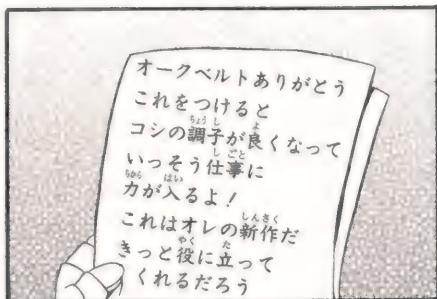 オークベルトありがとう
これをつけると
コシの調子が良くなって
いっそう仕事に
力が入るよ！
これはオレの新作だ
きっと役に立って
くれるだろう